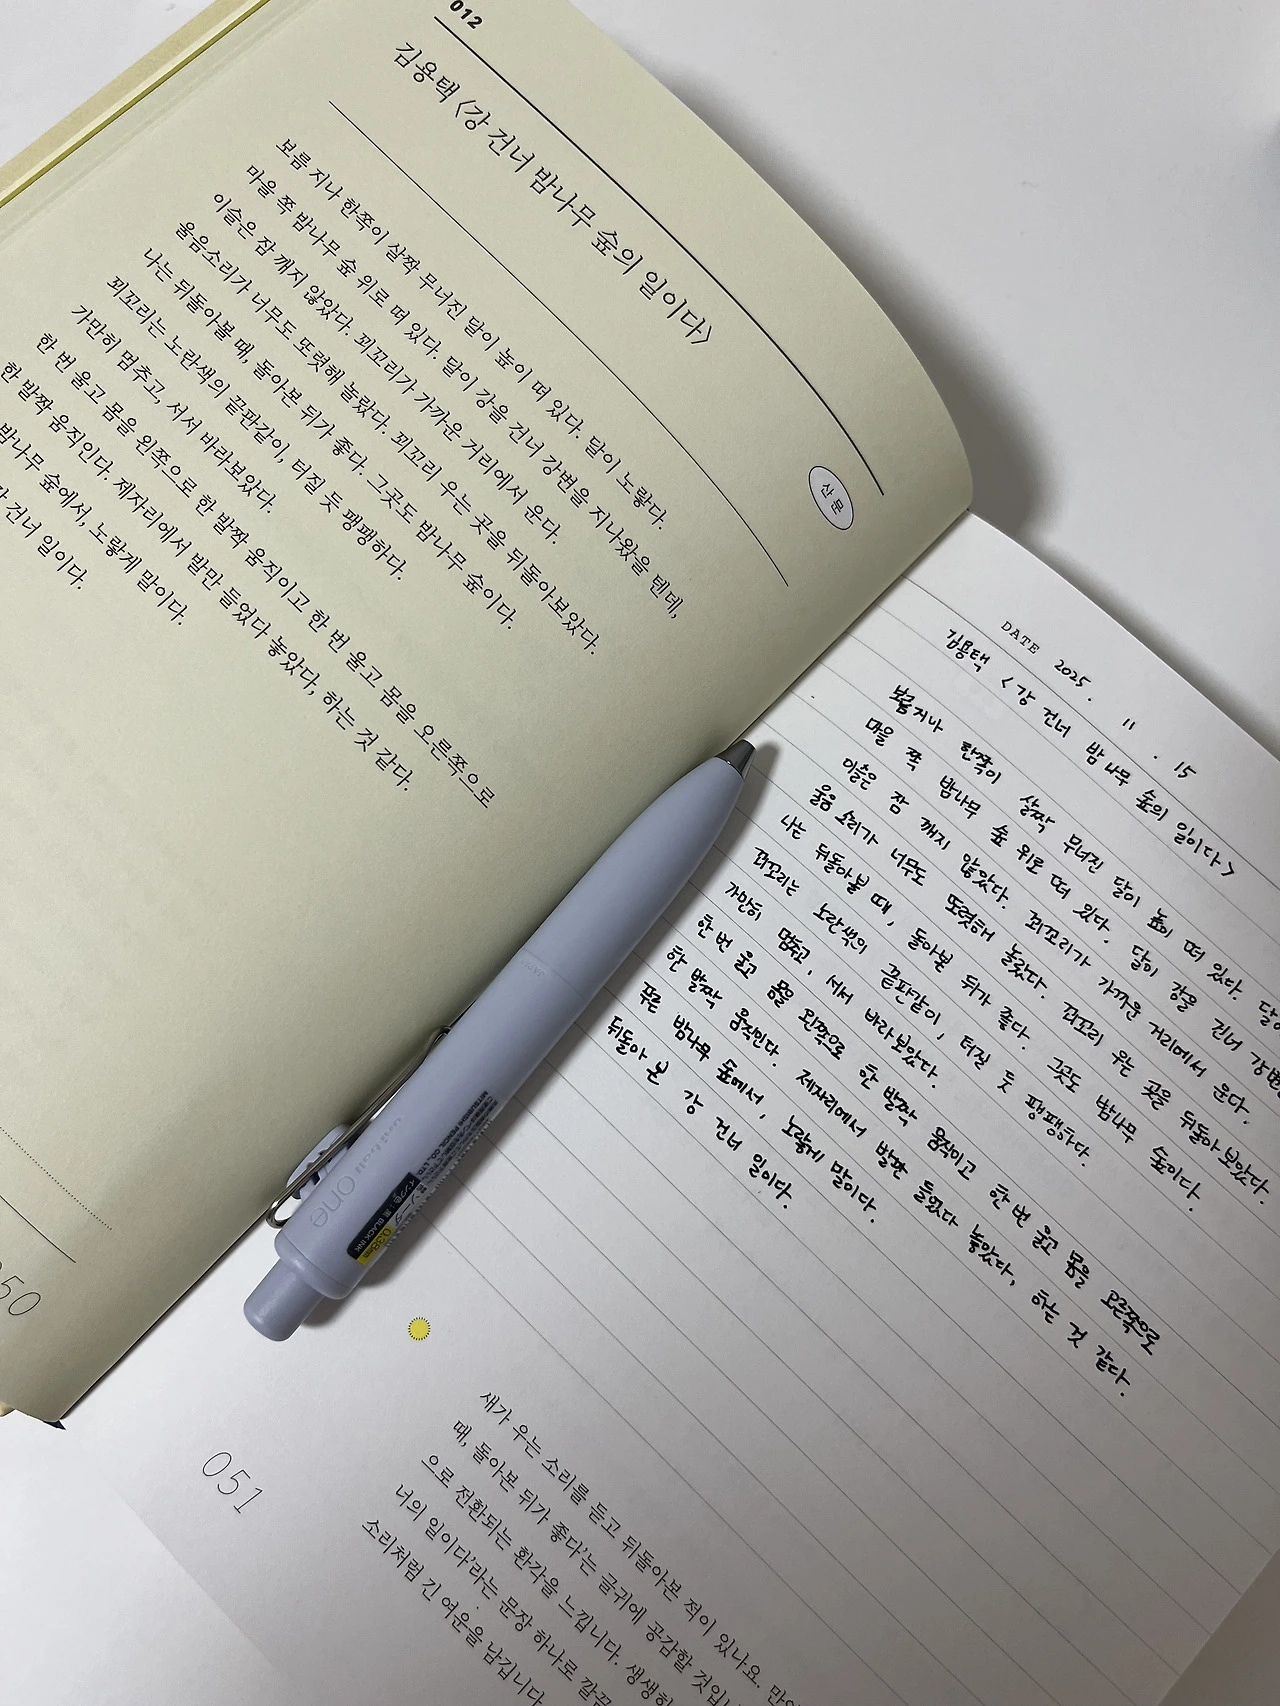 012
김용택 〈강 건너 밤나무 숲의 일이다〉
산문
보름 지나 한쪽이 살짝 무너진 달이 높이 떠 있다. 달이 노랗다.
마을 쪽 밤나무 숲 위로 떠 있다. 달이 강을 건너 강변을 지나왔을 텐데,
이슬은 잠 깨지 않았다. 꾀꼬리가 가까운 거리에서 운다.
울음소리가 너무도 또렷해 놀랐다. 꾀꼬리 우는 곳을 뒤돌아보았다.
나는 뒤돌아볼 때, 돌아본 뒤가 좋다. 그곳도 밤나무 숲이다.
꾀꼬리는 노란색의 끝판같이, 터질 듯 팽팽하다.
가만히 멈추고, 서서 바라보았다.
한 번 울고 몸을 왼쪽으로 한 발짝 움직이고 한 번 울고 몸을 오른쪽으로
한 발짝 움직인다. 제자리에서 발만 들었다 놓았다, 하는 것 같다.
밤나무 숲에서, 노랗게 말이다.
강 건너 일이다.
50
DATE 2025. 11. 15
김용택 〈강 건너 밤나무 숲의 일이다〉
보름 지나 한쪽이 살짝 무너진 달이 높이 떠 있다.
마을 쪽 밤나무 숲 위로 떠 있다. 달이 강을 건너
이슬은 잠 깨지 않았다. 꾀꼬리가 가까운 거리에서 운다.
울음 소리가 너무도 또렷해 놀랐다. 꾀꼬리 우는 곳을 뒤돌아보았다.
나는 뒤돌아볼 때, 돌아본 뒤가 좋다. 그곳도 밤나무 숲이다.
꾀꼬리는 노란색의 끝판같이, 터질 듯 팽팽하다.
가만히 멈추고, 서서 바라보았다.
한 번 울고 몸을 왼쪽으로 한 발짝 움직이고 한 번 울고 몸을 오른쪽으로
한 발짝 움직인다. 제자리에서 발만 들었다 놓았다, 하는 것 같다.
푸른 밤나무 숲에서, 노랗게 말이다.
뒤돌아 본 강 건너 일이다.
uni-ball one
MITSUBISHI PENCIL CO., LTD.
インク色:黒 BLACK INK
0.38mm
새가 우는 소리를 듣고 뒤돌아본 적이 있나요.
때, 돌아본 뒤가 좋다'는 글귀에 공감할
으로 전환되는 환각을 느낍니다.
너의 일이다'라는 문장 하나로
소리처럼 긴 여운을 남깁니다.
051